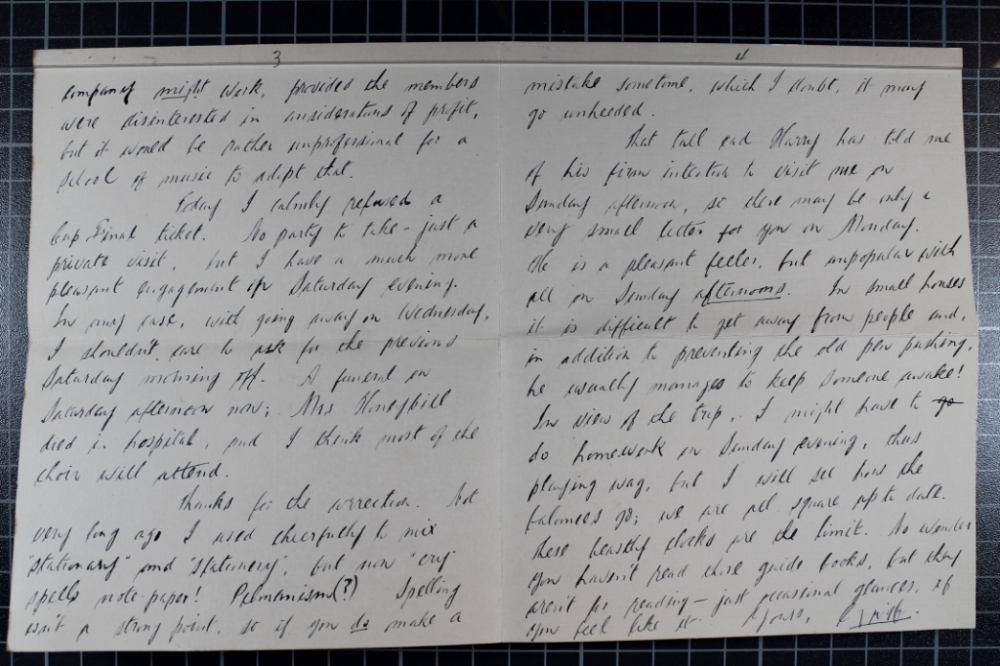 3
company might work, provided the members
were disinterested in considerations of profit,
but it would be rather unprofessional for a
school of music to adopt that.
Today I calmly refused a
Cup Final ticket. No party to take - just a
private visit, but I have a much more
pleasant engagement for Saturday evening.
In any case, with going away on Wednesday,
I shouldn't care to ask for the previous
Saturday morning off. A funeral on
Saturday afternoon now; Mrs Honeybill
died in hospital, and I think most of the
choir will attend.
Thanks for the correction. Not
very long ago I used cheerfully to mix
"stationary" and "stationery", but now "ery"
spells note-paper! Pelmanism(?) Spelling
isn't a strong point, so if you do make a
4
mistake sometime, which I doubt, it may
go unheeded.
That tall cad Harry has told me
of his firm intention to visit me on
Sunday afternoon, so there may be only a
very small letter for you on Monday.
He is a pleasant feller, but unpopular with
all on Sunday afternoons. In small houses
it is difficult to get away from people and,
in addition to preventing the old pen pushing,
he usually manages to keep someone awake!
In view of the trip, I might have to go
do homework on Sunday evening, thus
playing wag, but I will see how the
balances go; we are all square up to date.
These beastly clocks are the limit. No wonder
you haven't read those guide books, but they
aren't for reading - just occasional glances, if
you feel like it. Yours,